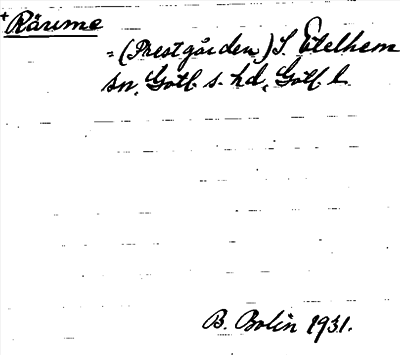 + Rårume
= (Prestgården) I. Etelhem
sn, Gotl. s. hd, Gotl. l.
B. Bolin 1931.